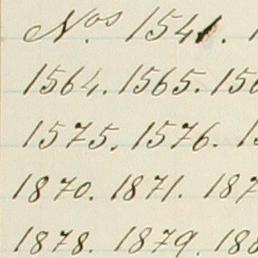 Nos 1541. 1
1564. 1565. 156
1575. 1576. 15
1870. 1871. 187
1878. 1879. 188